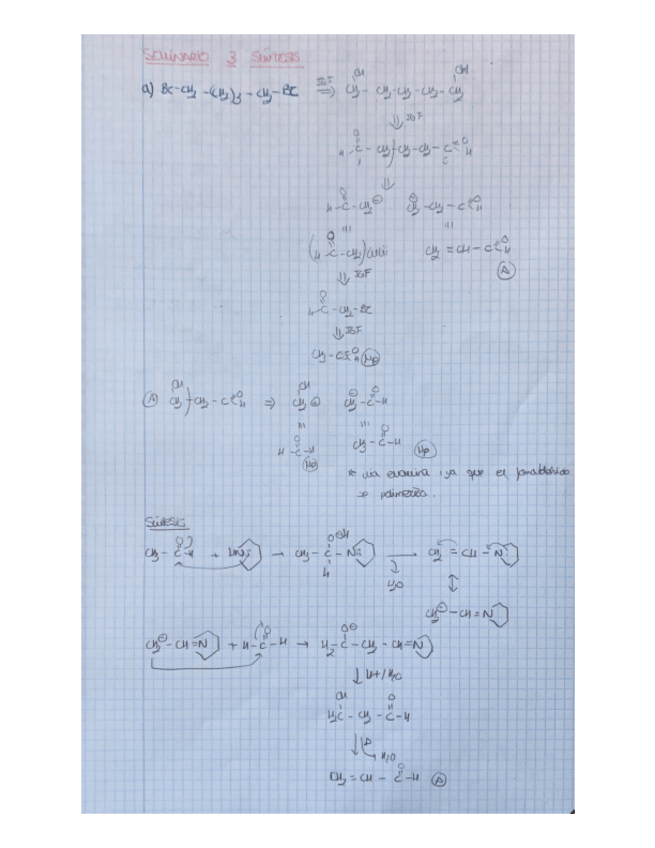 Seminario 3 Síntesis
a) Br-CH2 -(CH2)3 - CH2-Br IGF ⇒ OH OH
CH2- CH2-CH2-CH2-CH2
⇓ IGF
O
H-C - CH2-CH2-CH2- C=O H
⇓
O
H-C-CH2⊖ ⊕CH2-CH2-C=O H
||| |||
O
(H-C-CH2)CuLi CH2=CH-C=O H
⇓ IGF A
O
H-C-CH2-Br
⇓ IGF
CH3-C=O H Mp
A OH OH O
CH2-CH2-C=O H ⇒ CH2⊕ ⊖CH2-C-H
||| |||
O O
H-C-H CH3-C-H Mp
Mp
* vía enamina, ya que el formaldehído
se polimeriza.
Síntesis
O OH
CH3-C-H + HN → CH3-C-N → CH2=CH-N
H H2O ↕
CH2⊖-CH=N
O O⊖
CH2⊖-CH=N + H-C-H → H2C-CH2-CH=N
↓ H+/H2O
OH O
H2C-CH2-C-H
↓ Δ
H2O
O
CH2=CH-C-H A